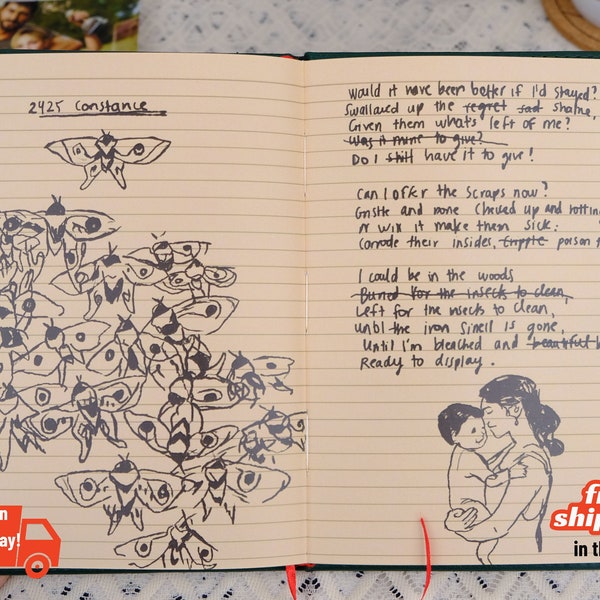 2425 Constance
Would it have been better if I'd stayed?
Swallowed up the regret sad shame,
Given them what's left of me?
Was it mine to give?
Do I still have it to give!
Can I offer the scraps now?
Gristle and bone chewed up and rotting
Or will it make them sick.
Corrode their insides, cripple poison
I could be in the woods
Buried for the insects to clean,
Left for the insects to clean,
Until the iron smell is gone,
Until I'm bleached and beautiful
Ready to display.
n
ay!
fr
ship
in th